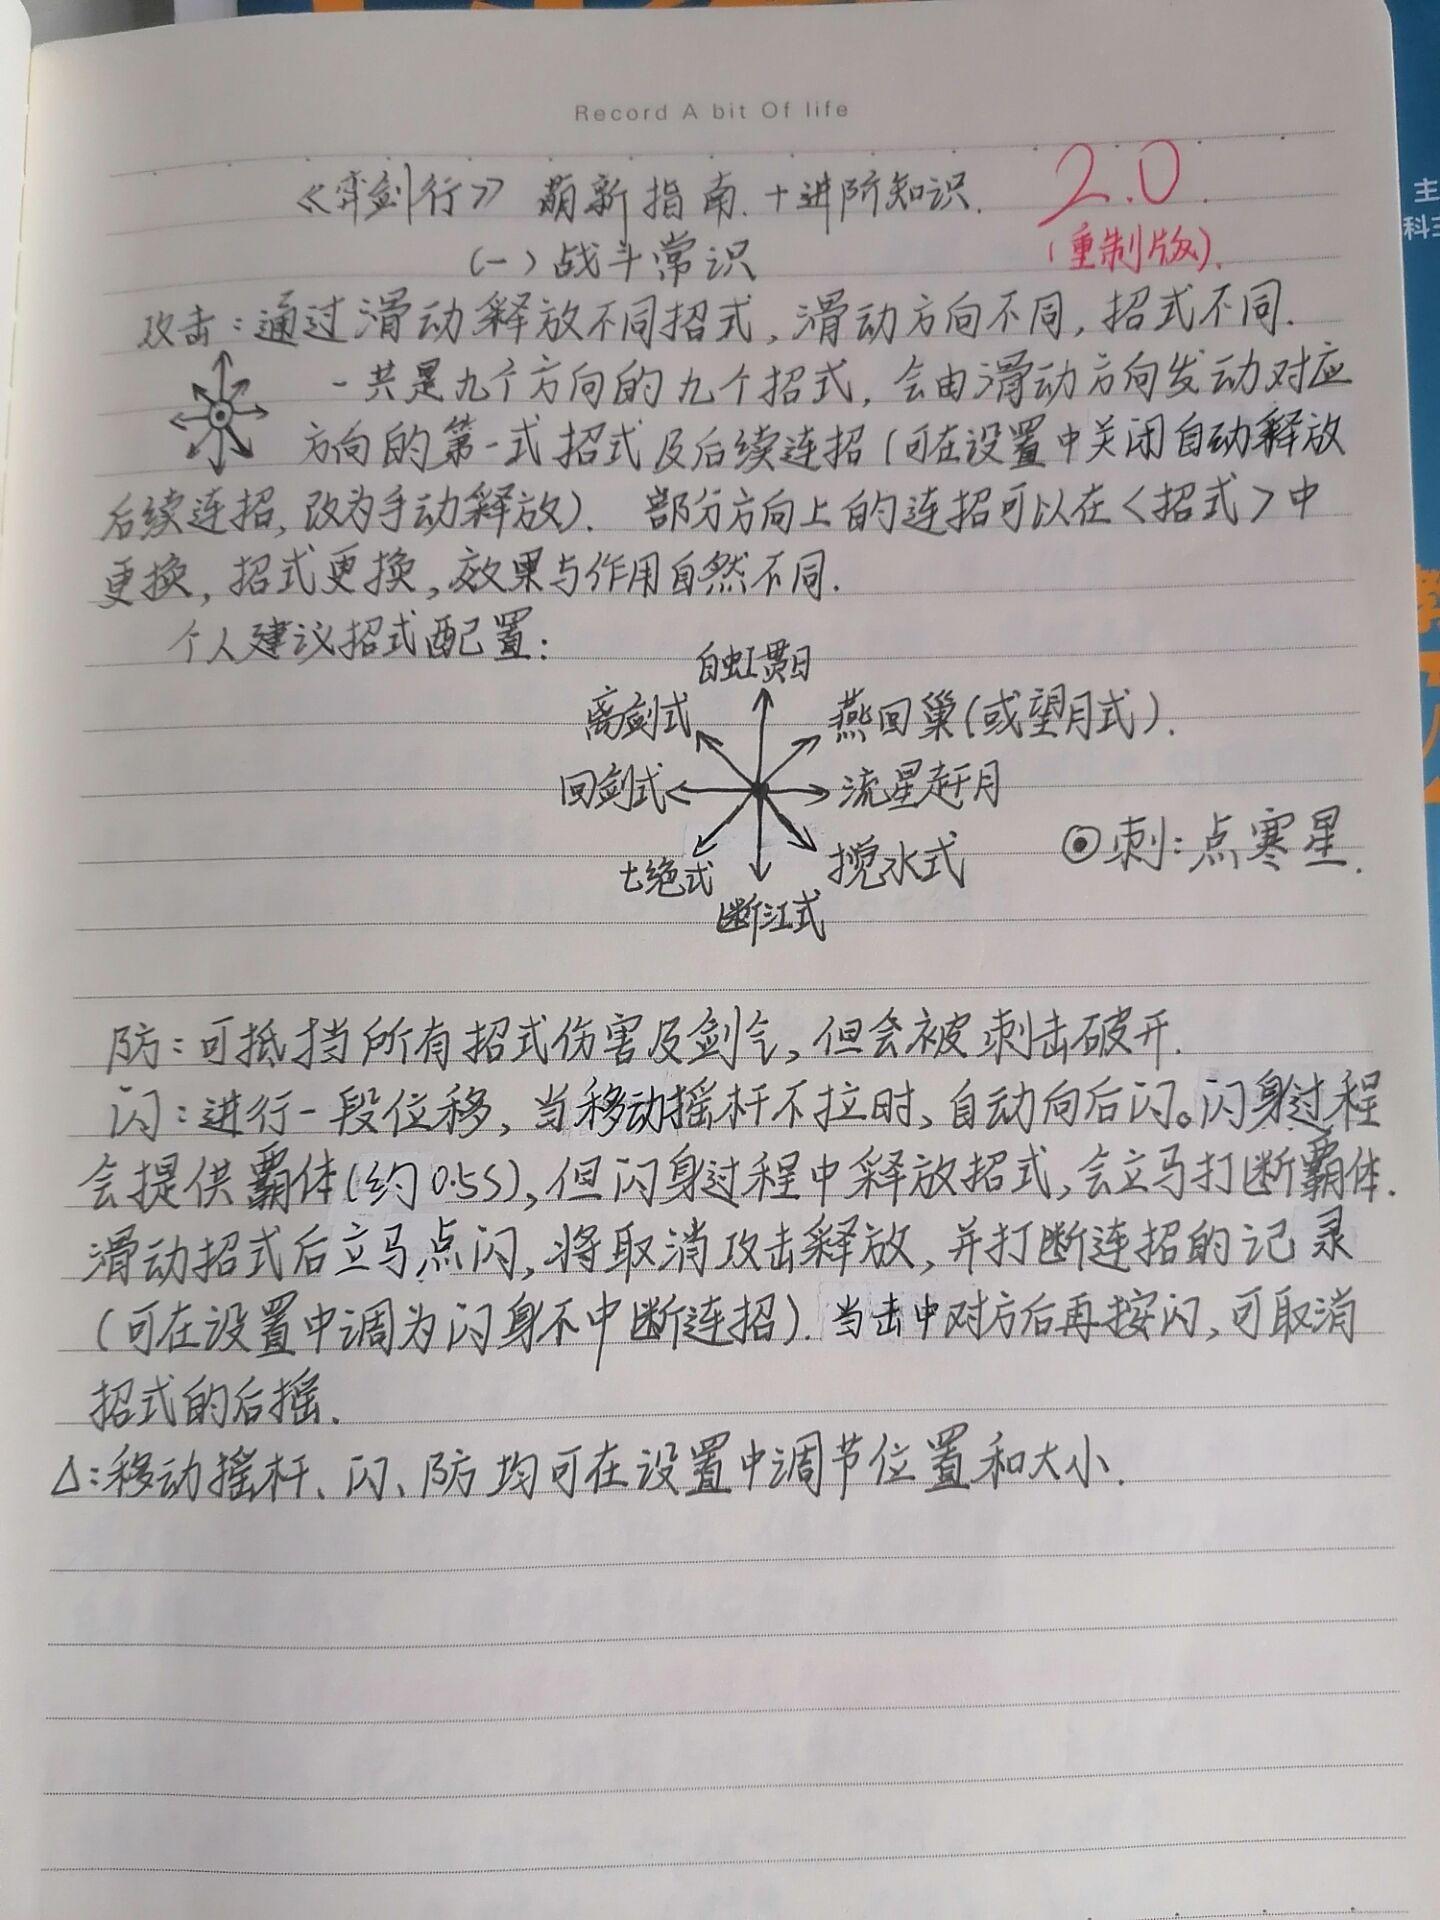 Record A bit Of life
《弈剑行》萌新指南.+进阶知识. 2.0.
(重制版).
(一)战斗常识
攻击:通过滑动释放不同招式,滑动方向不同,招式不同.
一共是九个方向的九个招式,会由滑动方向发动对应
方向的第一式招式及后续连招(可在设置中关闭自动释放
后续连招,改为手动释放). 部分方向上的连招可以在<招式>中
更换,招式更换,效果与作用自然不同.
个人建议招式配置:
白虹贯日
离剑式
燕回巢(或望月式).
回剑式
流星赶月
七绝式
搅水式
断江式
⊙刺:点寒星.
防:可抵挡所有招式伤害及剑气,但会被刺击破开.
闪:进行一段位移,当移动摇杆不拉时、自动向后闪。闪身过程
会提供霸体(约0.5S),但闪身过程中释放招式,会立马打断霸体.
滑动招式后立马点闪,将取消攻击释放,并打断连招的记录
(可在设置中调为闪身不中断连招).当击中对方后再按闪,可取消
招式的后摇.
△:移动摇杆、闪、防均可在设置中调节位置和大小.
主
科